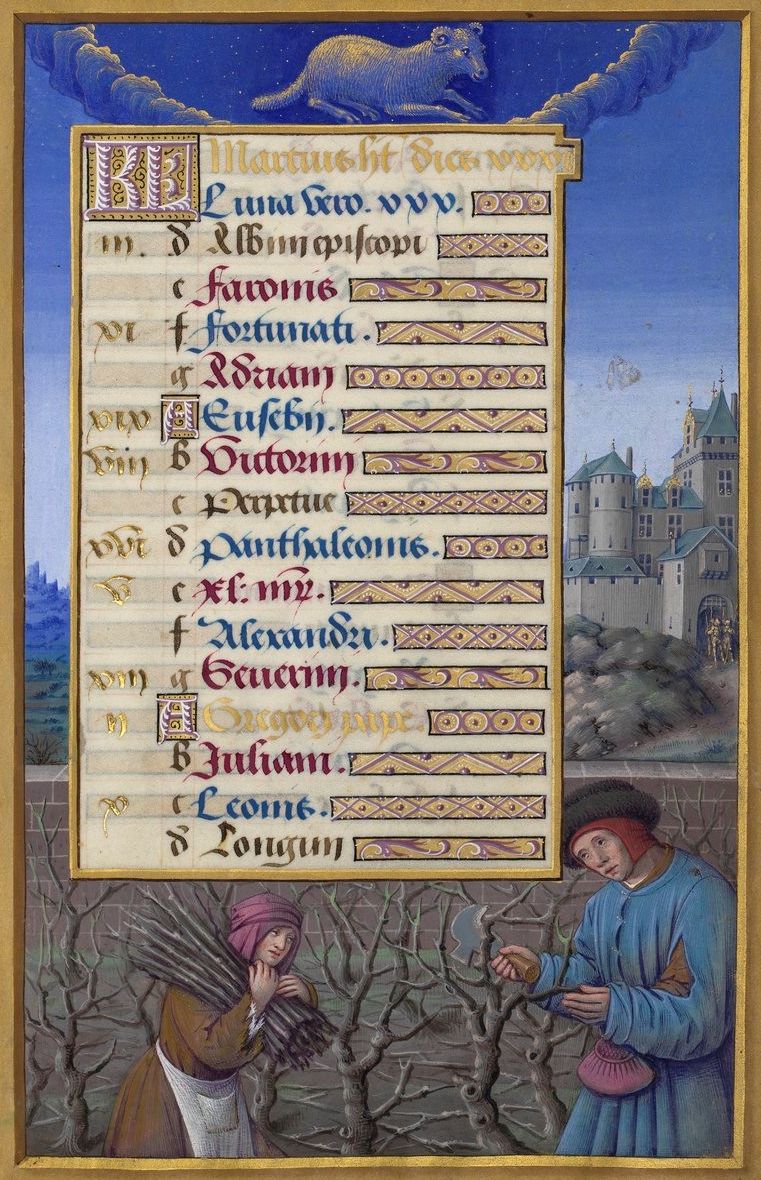 KL Martius ht dies xxxi
Luna vero. xxx.
iii. d Albini episcopi
e Faronis
xi f Fortunati.
g Adriani
xix A Eusebii.
viii b Victorini
c Perpetue
xvi d Panthaleonis.
v e xl: mr.
f Alexandri.
xiii g Severini.
ii A Gregorii pape.
b Juliani.
x c Leonis.
d Longini